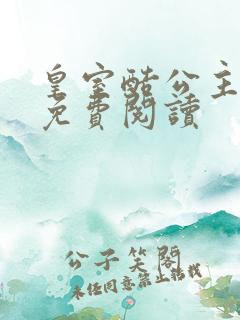 皇室酷公主
免費閱讀
公子笑閱
未经同意禁止转载